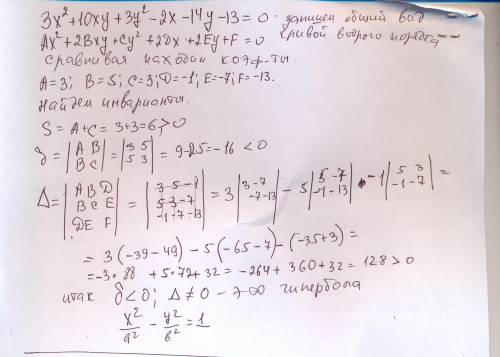 3x² + 10xy + 3y² - 2x - 14y - 13 = 0 · запишем общий вид
Ax² + 2Bxy + Cy² + 2Dx + 2Ey + F = 0 кривой второго порядка
сравнивая находим коэф-ты.
A=3; B=5; C=3; D=-1; E=-7; F=-13.
Найдем инварианты.
S = A+C = 3+3=6 >0
δ = |A B; B C| = |3 5; 5 3| = 9-25=-16 <0
Δ = |A B D; B C E; D E F| = |3 5 -1; 5 3 -7; -1 -7 -13| = 3 |3 -7; -7 -13| - 5 |5 -7; -1 -13| + -1 |5 3; -1 -7| =
= 3(-39-49) - 5(-65-7) - (-35+3) =
= -3·88 + 5·72 + 32 = -264 + 360 + 32 = 128 >0
итак δ<0; Δ≠0 - это гипербола
x²/a² - y²/b² = 1